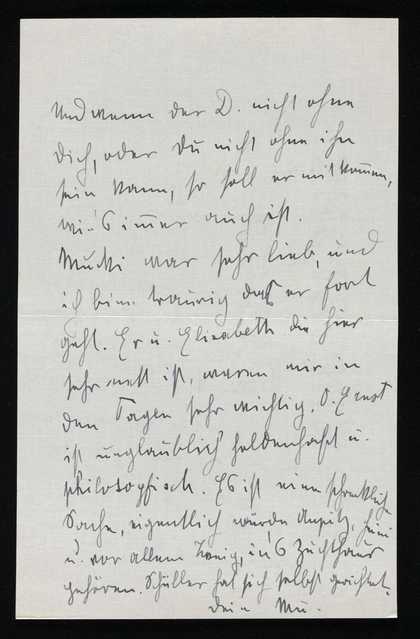 Und wenn der D. nicht ohne
Dich, oder Du nicht ohne ihn
sein kann, so soll er mitkommen,
wie's immer auch ist.
Mucki war sehr lieb, und
ich bin traurig dass er fort
geht. Er u. Elisabeth die hier
sehr nett ist, waren mir in
den Tagen sehr wichtig. O. Ernst
ist unglaublich heldenhaft u.
philosophisch. Es ist eine schreckliche
Sache, eigentlich würden Auspitz,
u. vor allem König, in's Zuchthaus
gehören. Schüller hat sich selbst gerichtet.
Dein Mu.